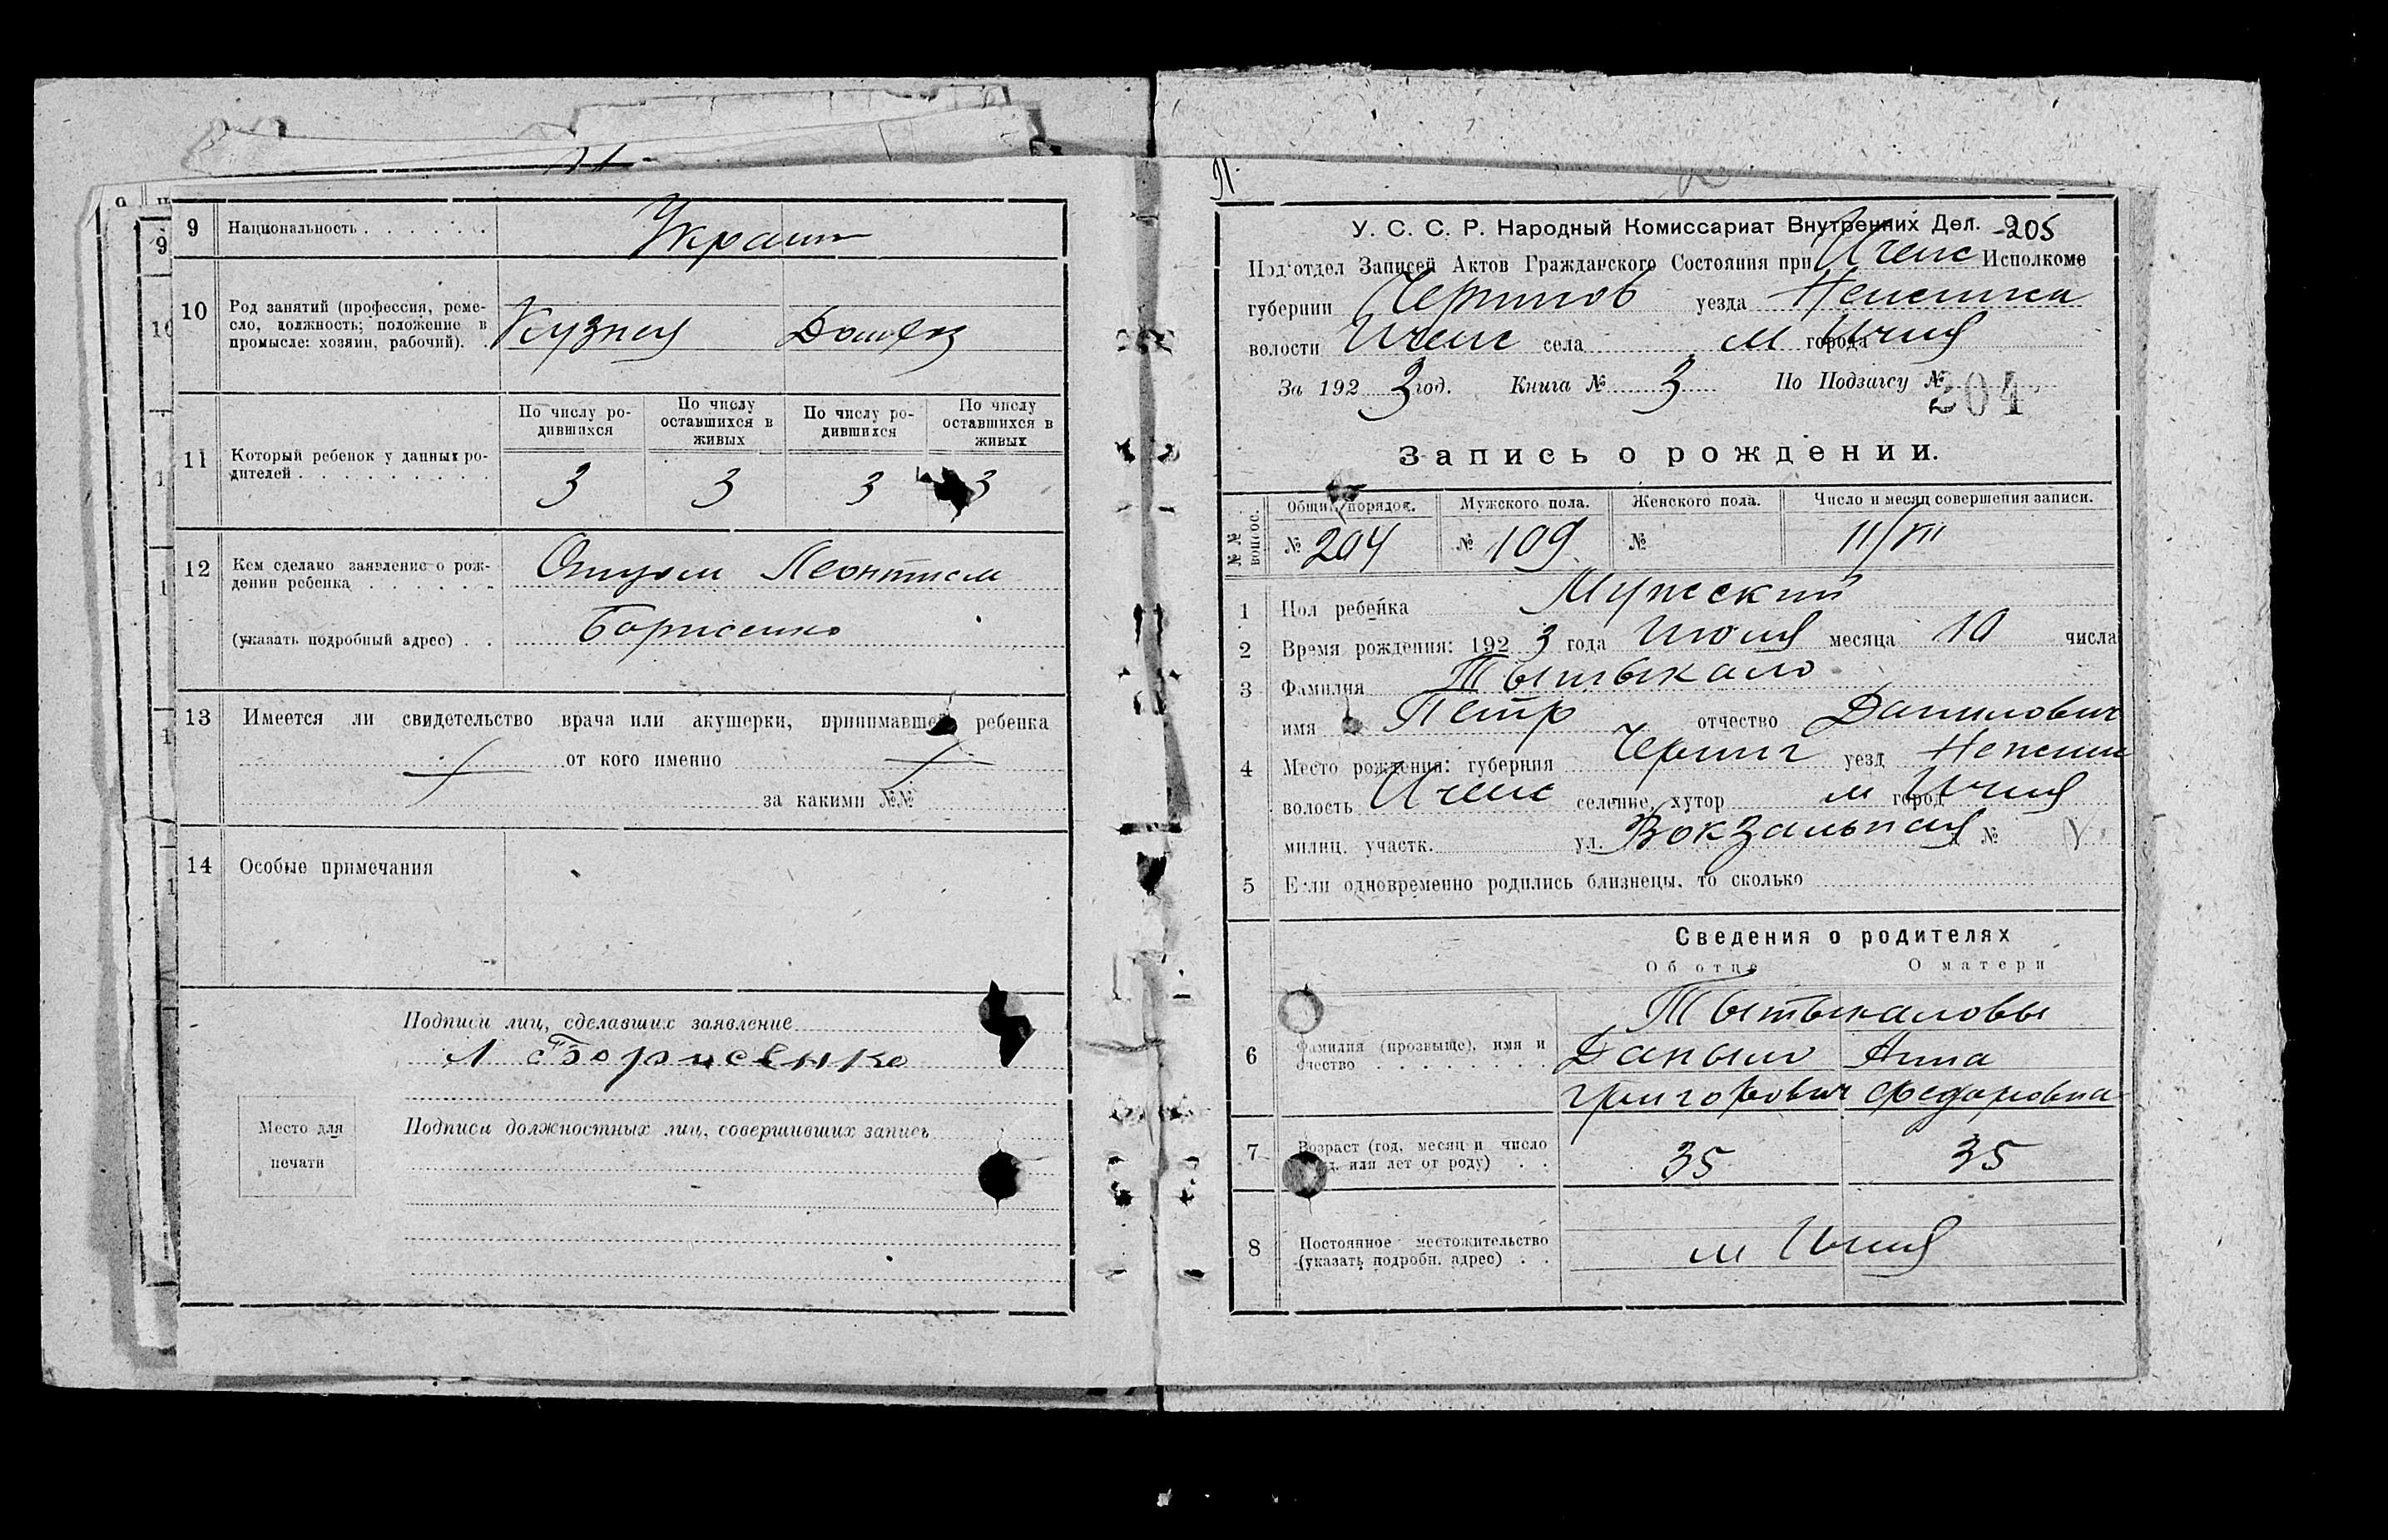 9 Национальность . . . . . . Украин
10 Род занятий (профессия, реме-
сло, должность; положение в
промысле: хозяин, рабочий). . Кузнец Домхоз
11 Который ребенок у данных ро-
дителей . . . . . . . . .
По числу ро-
дившихся
По числу
оставшихся в
живых
По числу ро-
дившихся
По числу
оставшихся в
живых
3 3 3 3
12 Кем сделано заявление о рож-
дении ребенка . . . . . . Леонтием
(указать подробный адрес) . . Борисенко
13 Имеется ли свидетельство врача или акушерки, принимавшей ребенка
от кого именно
за какими №№
14 Особые примечания
Подписи лиц, сделавших заявление
Л Борисенко
Подписи должностных лиц, совершивших запись
Место для
печати
У. С. С. Р. Народный Комиссариат Внутренних Дел. 205
Под‘отдел Записей Актов Гражданского Состояния при Иченс Исполкоме
губернии Чернигов уезда Неженска
волости Иченс села м города Ичня
За 192 3 год. Книга № 3 По Подзагсу № 204
Запись о рождении.
№ № вопрос.
Общий порядок. Мужского пола. Женского пола. Число и месяц совершения записи.
№ 204 № 109 № 11/VII
1 Пол ребенка Мужеский
2 Время рождения: 192 3 года Июля месяца 10 числа
3 Фамилия Тытыкало
имя Петр отчество Данилович
4 Место рождения: губерния Черниг уезд Неженск
волость Иченс селение, хутор м город Ичня
милиц. участк. ул. Вокзальная №
5 Если одновременно родились близнецы, то сколько
Сведения о родителях
Об отце О матери
Тытыкаловы
6 Фамилия (прозвыще), имя и Даныло Анна
очество . . . . . . . . Григорович Федоровна
7 Возраст (год, месяц и число
рожд. или лет от роду) . . 35 35
8 Постоянное местожительство
(указать подробн. адрес) . . м Ичня